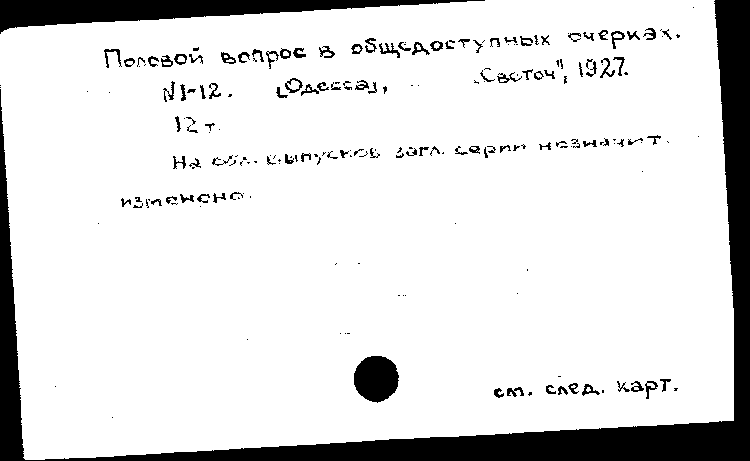 Половой вопрос в общедоступных очерках.
№1-12. [Одесса], „Светоч", 1927.
12 т.
На обл. выпусков загл. серии незначит.
изменено.
см. след. карт.